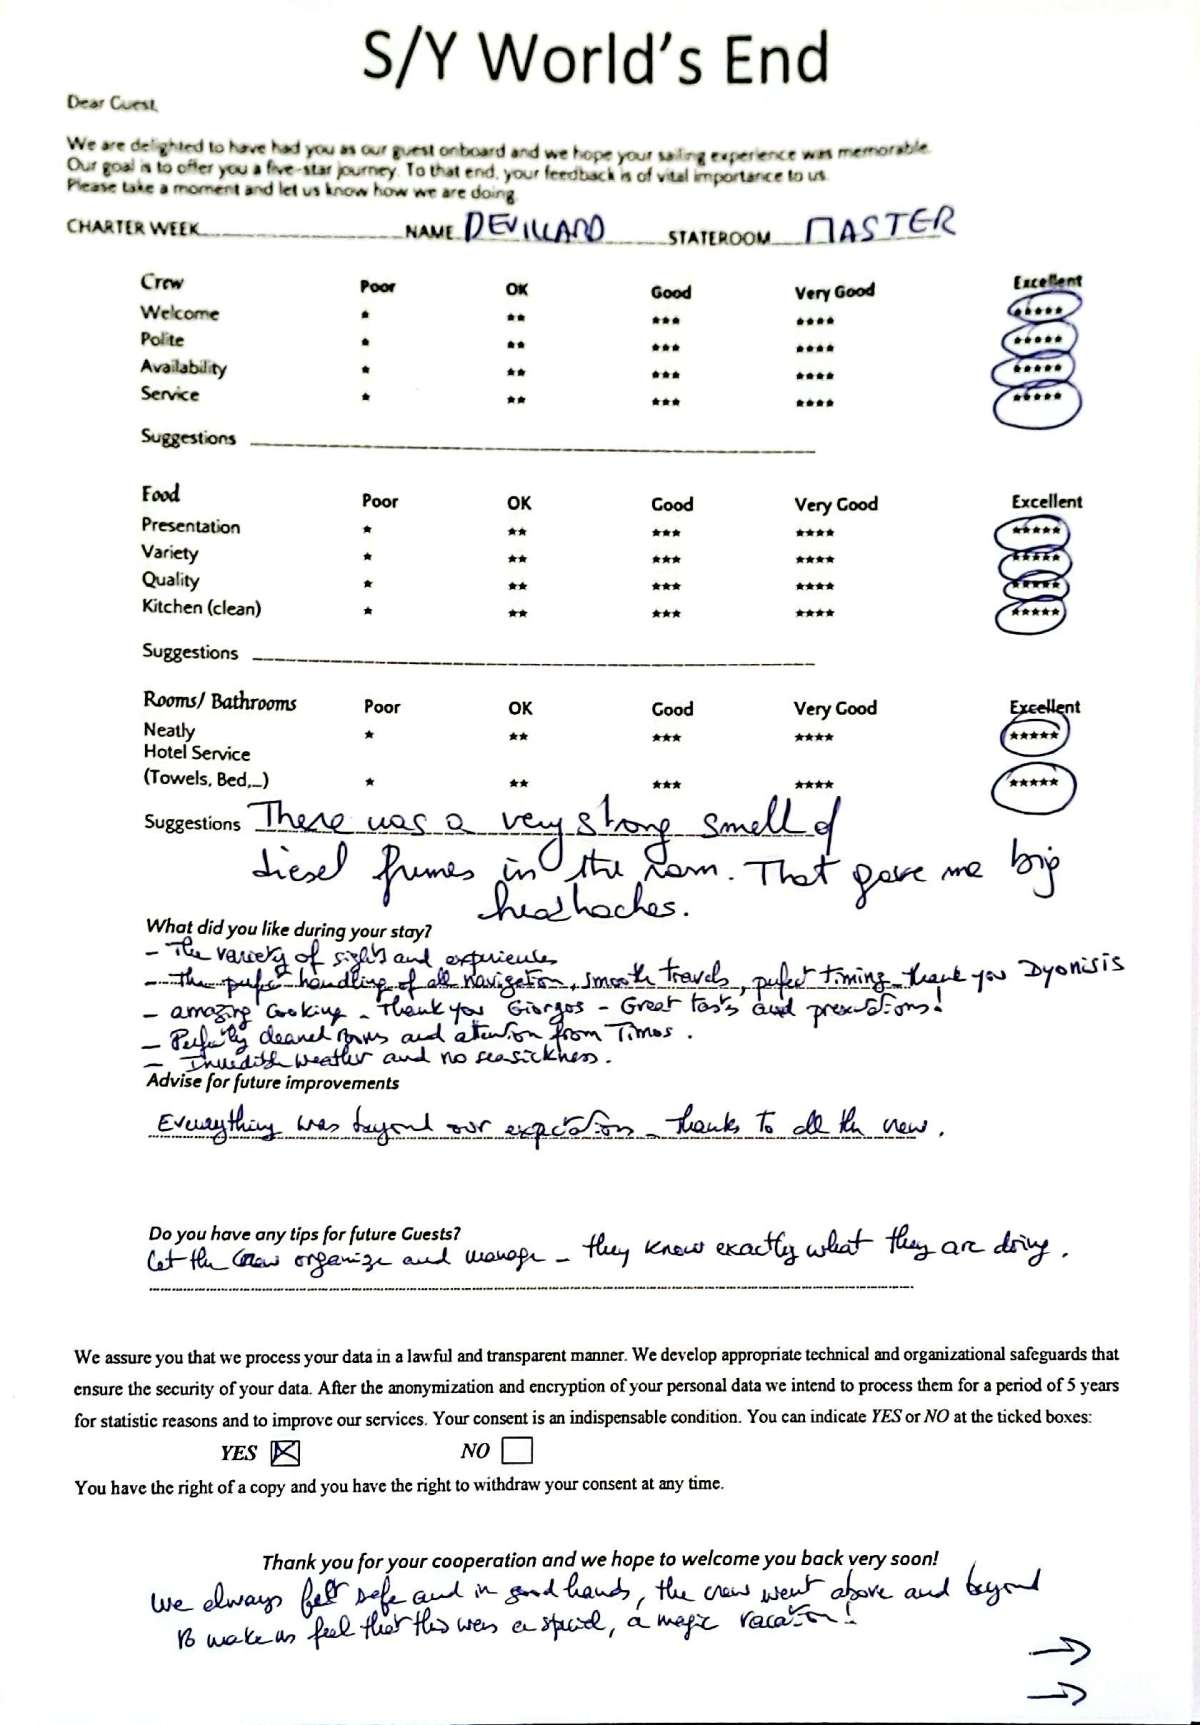 S/Y World's End
Dear Guest,
We are delighted to have had you as our guest onboard and we hope your sailing experience was memorable.
Our goal is to offer you a five-star journey. To that end, your feedback is of vital importance to us.
Please take a moment and let us know how we are doing
CHARTER WEEK NAME DEVILLARD STATEROOM MASTER
Crew Poor OK Good Very Good Excellent
Welcome * ** *** **** *****
Polite * ** *** **** *****
Availability * ** *** **** *****
Service * ** *** **** *****
Suggestions
Food Poor OK Good Very Good Excellent
Presentation * ** *** **** *****
Variety * ** *** **** *****
Quality * ** *** **** *****
Kitchen (clean) * ** *** **** *****
Suggestions
Rooms/ Bathrooms Poor OK Good Very Good Excellent
Neatly * ** *** **** *****
Hotel Service
(Towels, Bed,...) * ** *** **** *****
Suggestions There was a very strong smell of
diesel frumes in the room. That gave me big
headhaches.
What did you like during your stay?
- The variety of sights and experiences
- The perfect handling of all navigation, smooth travels, perfect timing - thank you Dyonisis
- amazing cooking - Thank you Giorgos - Great tasts and presentations!
- Perfectly cleaned rooms and attention from Timos.
- Incredible weather and no seasickness.
Advise for future improvements
Everything was beyond our expectations - thanks to all the crew.
Do you have any tips for future Guests?
let the crew organize and manage - they know exactly what they are doing.
We assure you that we process your data in a lawful and transparent manner. We develop appropriate technical and organizational safeguards that
ensure the security of your data. After the anonymization and encryption of your personal data we intend to process them for a period of 5 years
for statistic reasons and to improve our services. Your consent is an indispensable condition. You can indicate YES or NO at the ticked boxes:
YES NO
You have the right of a copy and you have the right to withdraw your consent at any time.
Thank you for your cooperation and we hope to welcome you back very soon!
We always felt safe and in good hands, the crew went above and beyond
to make us feel that this was a special, a magic vacation!